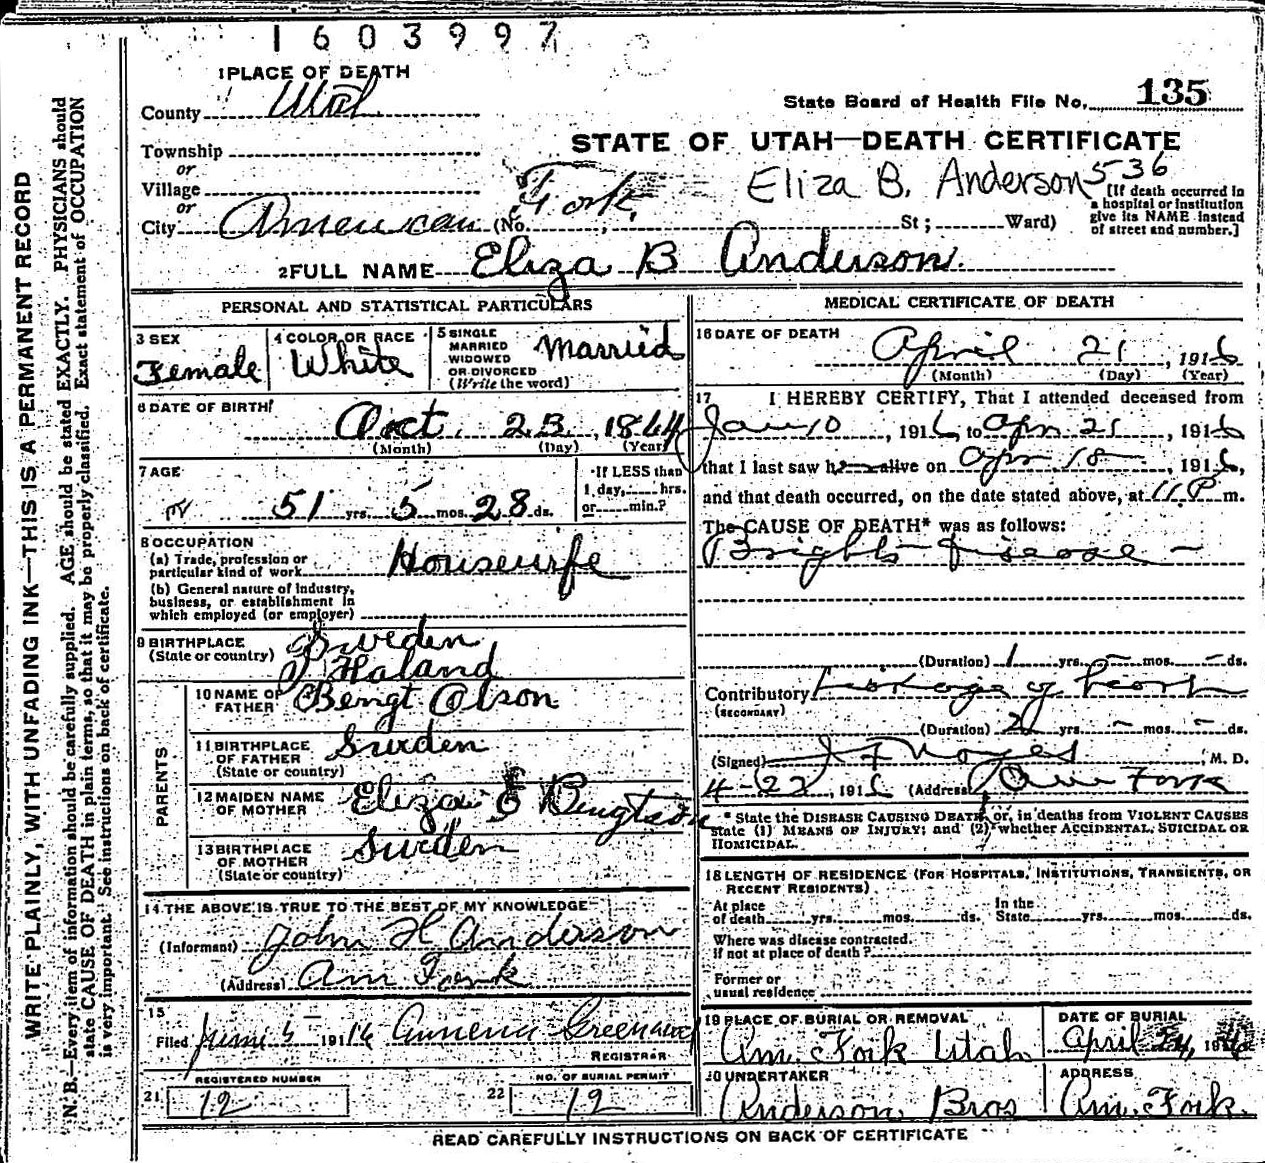 1603997
1 PLACE OF DEATH
County Utah
State Board of Health File No. 135
STATE OF UTAH—DEATH CERTIFICATE
Township
or
Village
or
City American Fork (No. St; Ward)
Eliza B. Anderson 536
[If death occurred in a hospital or institution give its NAME instead of street and number.]
2 FULL NAME Eliza B Anderson
PERSONAL AND STATISTICAL PARTICULARS
3 SEX
Female
4 COLOR OR RACE
White
5 SINGLE
MARRIED
WIDOWED
OR DIVORCED
(Write the word)
Married
6 DATE OF BIRTH
Oct. 23, 1864
(Month) (Day) (Year)
7 AGE
51 yrs. 5 mos. 28 ds.
If LESS than
1 day, hrs.
or min.?
8 OCCUPATION
(a) Trade, profession or
particular kind of work Housewife
(b) General nature of industry,
business, or establishment in
which employed (or employer)
9 BIRTHPLACE
(State or country)
Sweden
Haland
PARENTS
10 NAME OF
FATHER
Bengt Olson
11 BIRTHPLACE
OF FATHER
(State or country)
Sweden
12 MAIDEN NAME
OF MOTHER
Eliza Bengtson
13 BIRTHPLACE
OF MOTHER
(State or country)
Sweden
14 THE ABOVE IS TRUE TO THE BEST OF MY KNOWLEDGE
(Informant) John H Anderson
(Address) Am Fork
15
Filed June 5 1916 Greenwood
REGISTRAR
REGISTERED NUMBER
21 12
NO. OF BURIAL PERMIT
22 12
MEDICAL CERTIFICATE OF DEATH
16 DATE OF DEATH
April 21, 1916
(Month) (Day) (Year)
17 I HEREBY CERTIFY, That I attended deceased from
Jan 10, 1916, to Apr 21, 1916
that I last saw h alive on Apr 18, 1916,
and that death occurred, on the date stated above, at 11 P m.
The CAUSE OF DEATH* was as follows:
Brights Disease
(Duration) 1 yrs. - mos. - ds.
Contributory Leakage of heart
(SECONDARY)
(Duration) 2 yrs. - mos. - ds.
(Signed) Noyes, M. D.
4-22, 1916 (Address) Am Fork
* State the DISEASE CAUSING DEATH, or, in deaths from VIOLENT CAUSES
state (1) MEANS OF INJURY; and (2) whether ACCIDENTAL, SUICIDAL OR
HOMICIDAL.
18 LENGTH OF RESIDENCE (FOR HOSPITALS, INSTITUTIONS, TRANSIENTS, OR
RECENT RESIDENTS)
At place
of death yrs. mos. ds.
In the
State yrs. mos. ds.
Where was disease contracted,
if not at place of death?
Former or
usual residence
19 PLACE OF BURIAL OR REMOVAL
Am. Fork Utah
DATE OF BURIAL
April 24, 191
20 UNDERTAKER
Anderson Bros
ADDRESS
Am. Fork.
READ CAREFULLY INSTRUCTIONS ON BACK OF CERTIFICATE
WRITE PLAINLY, WITH UNFADING INK—THIS IS A PERMANENT RECORD
N. B.—Every item of information should be carefully supplied. AGE should be stated EXACTLY. PHYSICIANS should
state CAUSE OF DEATH in plain terms, so that it may be properly classified. Exact statement of OCCUPATION
is very important. See instructions on back of certificate.